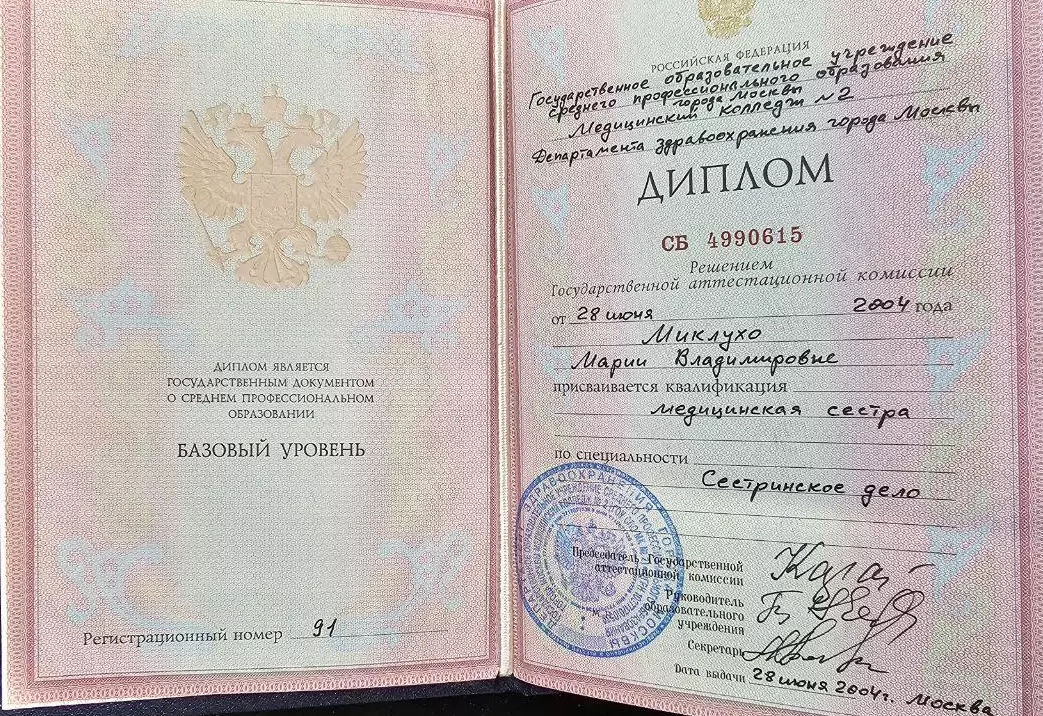 ДИПЛОМ ЯВЛЯЕТСЯ
ГОСУДАРСТВЕННЫМ ДОКУМЕНТОМ
О СРЕДНЕМ ПРОФЕССИОНАЛЬНОМ
ОБРАЗОВАНИИ
БАЗОВЫЙ УРОВЕНЬ
Регистрационный номер 91
РОССИЙСКАЯ ФЕДЕРАЦИЯ
Государственное образовательное учреждение
среднего профессионального образования
города Москвы
Медицинский колледж №2
Департамента здравоохранения города Москвы
ДИПЛОМ
СБ 4990615
Решением
Государственной аттестационной комиссии
от 28 июня 2004 года
Миклухо
Марии Владимировне
присваивается квалификация
медицинская сестра
по специальности
Сестринское дело
Председатель Государственной
аттестационной комиссии
Руководитель
образовательного
учреждения
Секретарь
Дата выдачи 28 июня 2004г. Москва